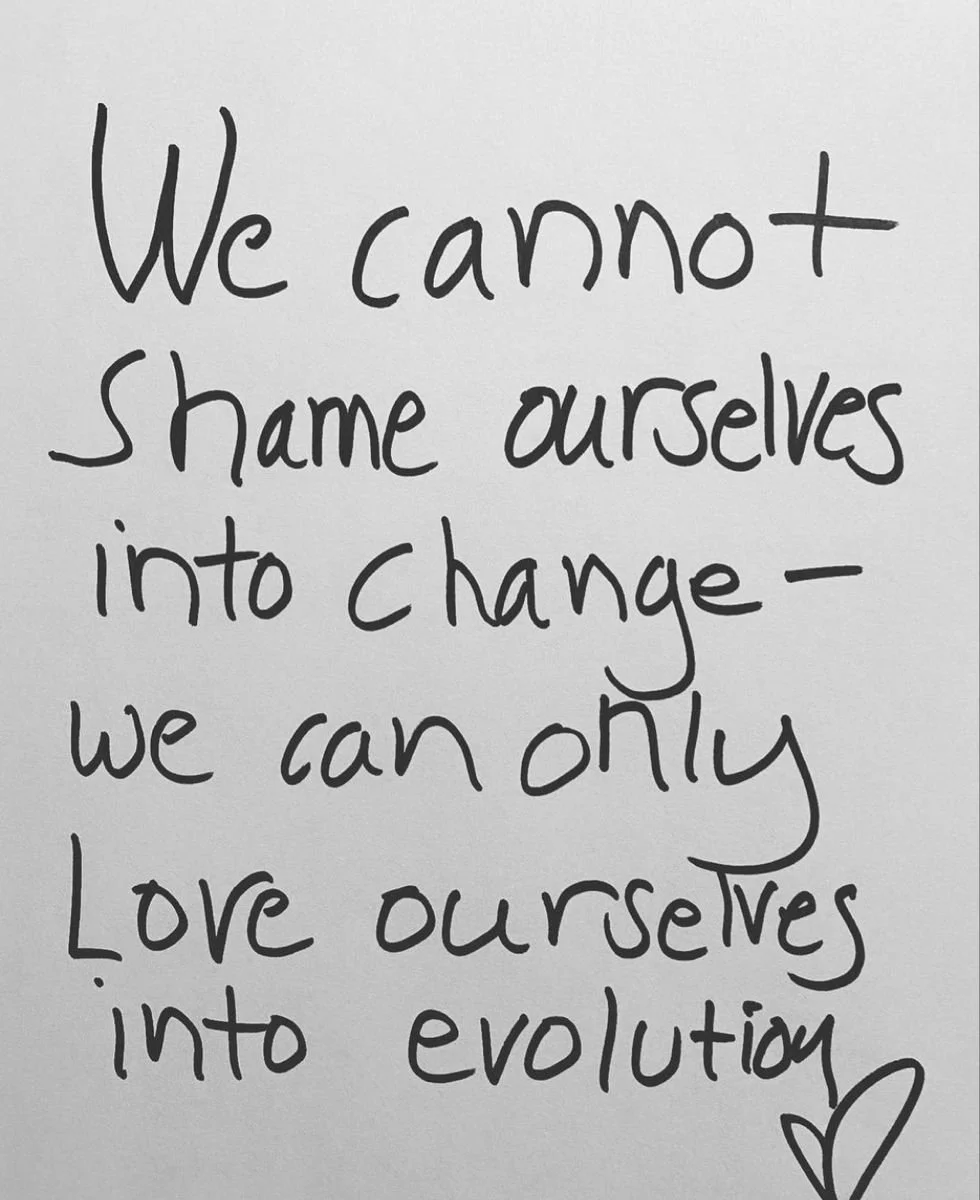 We cannot
Shame ourselves
into change –
we can only
Love ourselves
into evolution